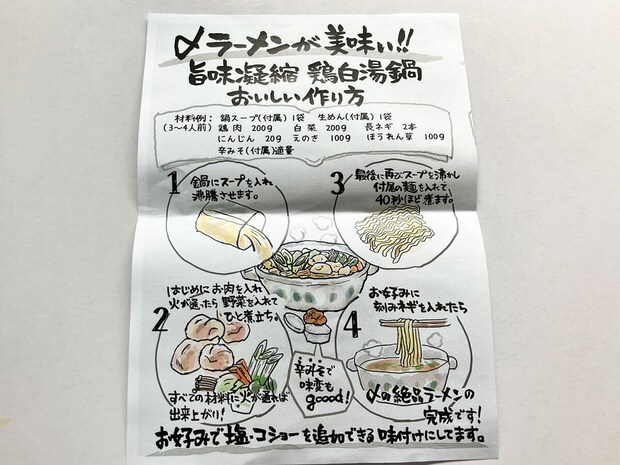 〆ラーメンが美味い!!
旨味凝縮 鶏白湯鍋
おいしい作り方
材料例: 鍋スープ(付属) 1袋 生めん(付属) 1袋
(3～4人前) 鶏肉 200g 白菜 200g 長ネギ 2本
にんじん 20g えのき 100g ほうれん草 100g
辛みそ(付属)適量
1
鍋にスープを入れ
沸騰させます。
2
はじめにお肉を入れ
火が通ったら野菜を入れて
ひと煮立ち。
すべての材料に火が通れば
出来上がり!
辛みそで
味変も
good!
3
最後に再びスープを沸かし
付属の麺を入れて
40秒ほど煮ます。
4
お好みに
刻みネギを入れたら
〆の絶品ラーメンの
完成です!
お好みで塩・コショーを追加できる味付けにしてます。